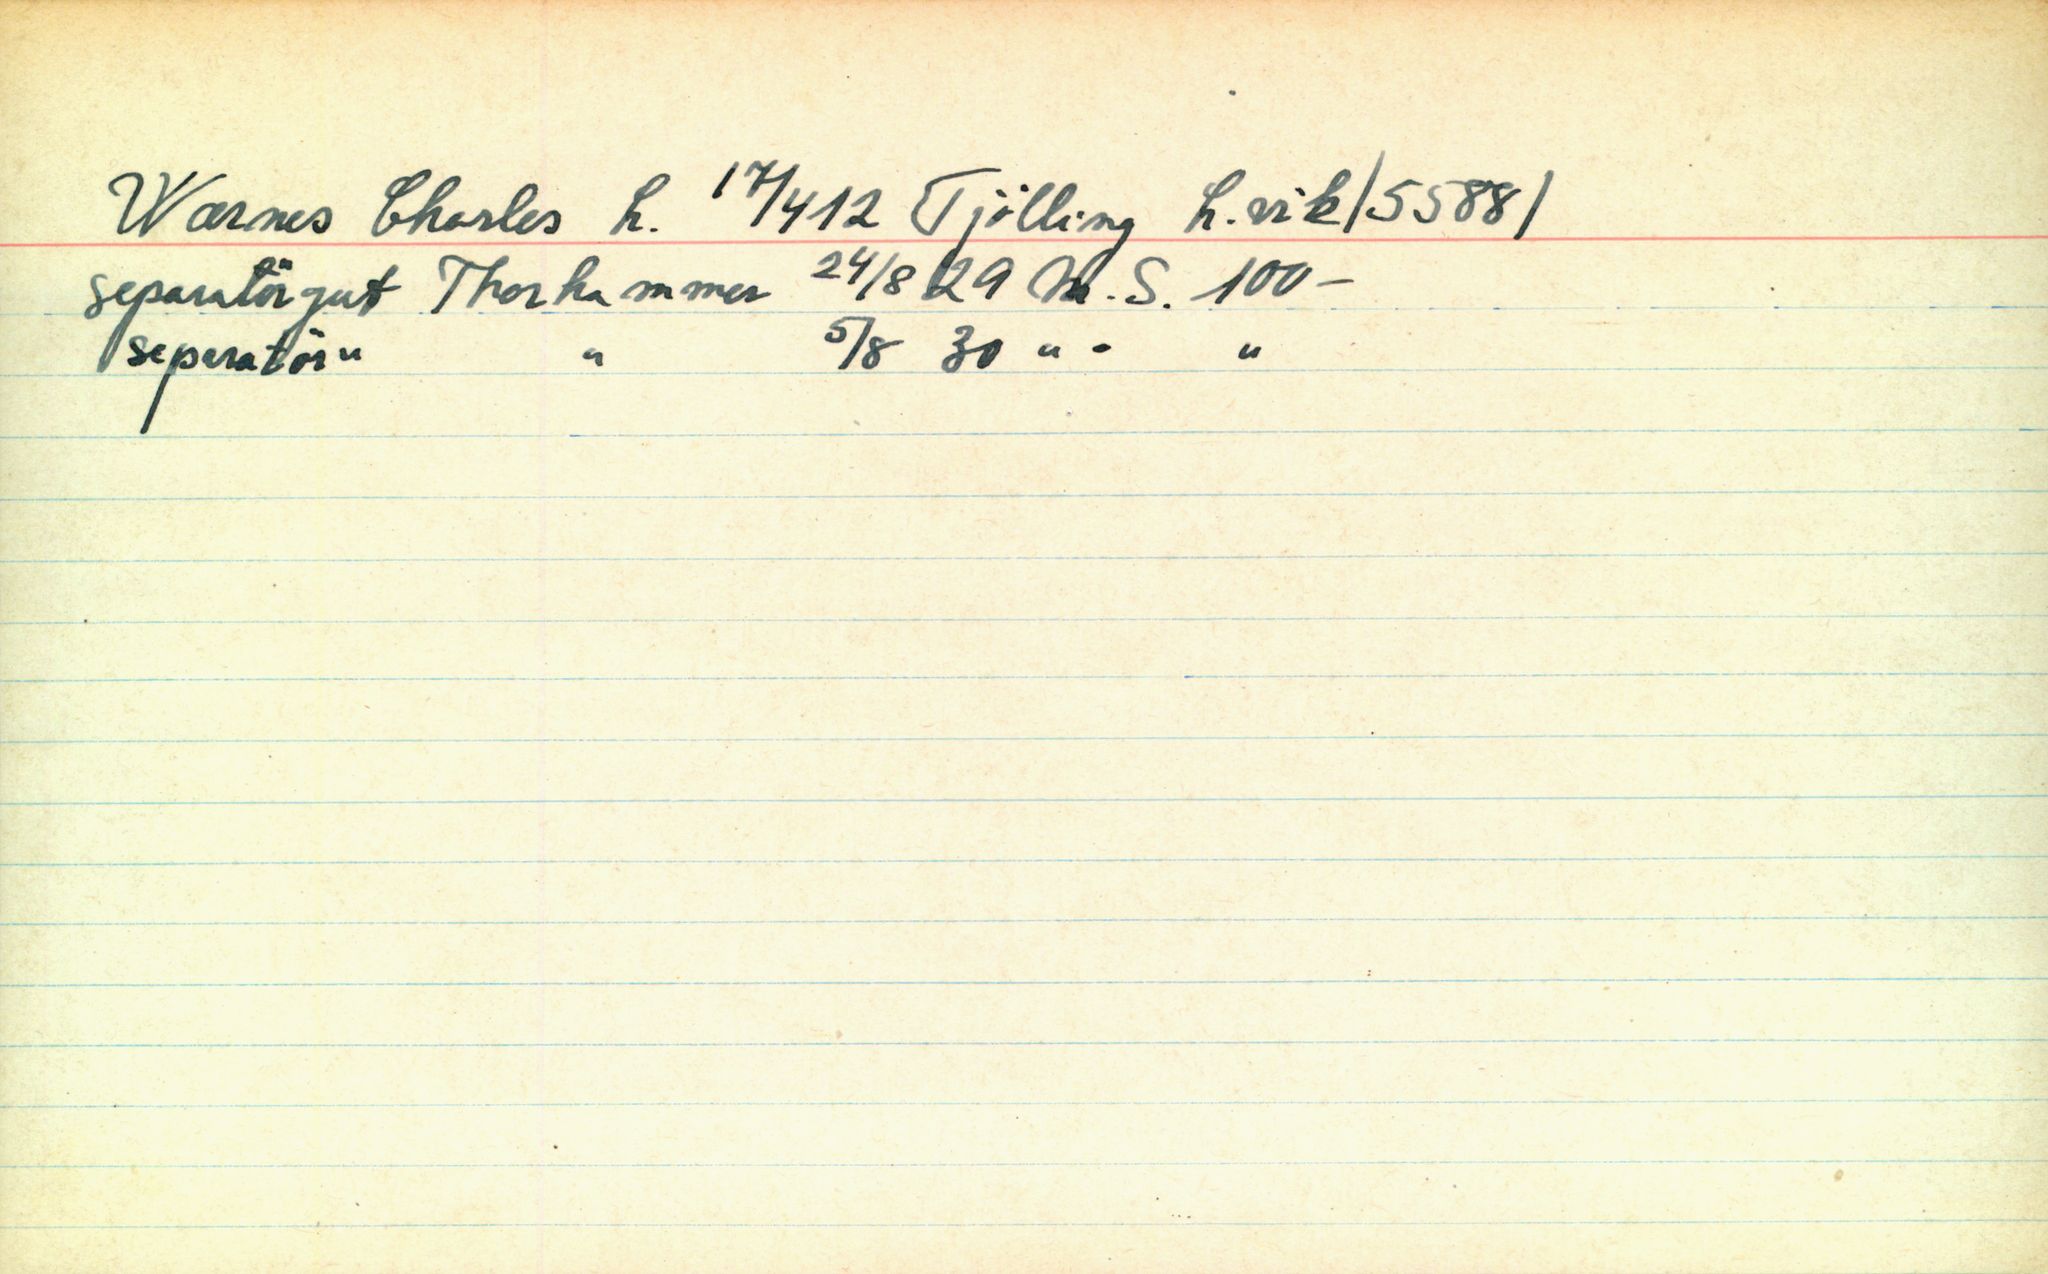 Wærnes Charles L. 17/4 12 Tjölling L.vik /5588/
separatörgut Thorhammer 24/8 29 M.S. 100-
seperatör " " 5/8 30 " - "